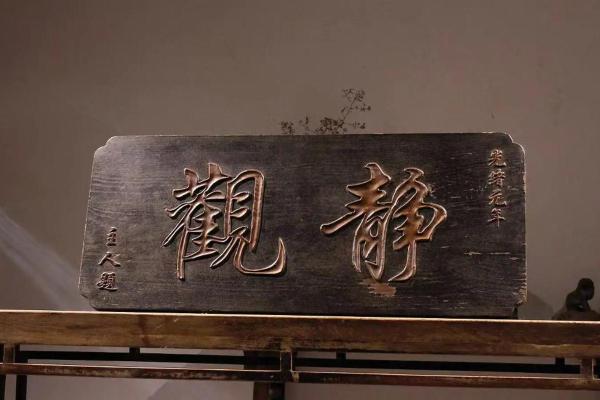 光緒元年
靜觀
主人題